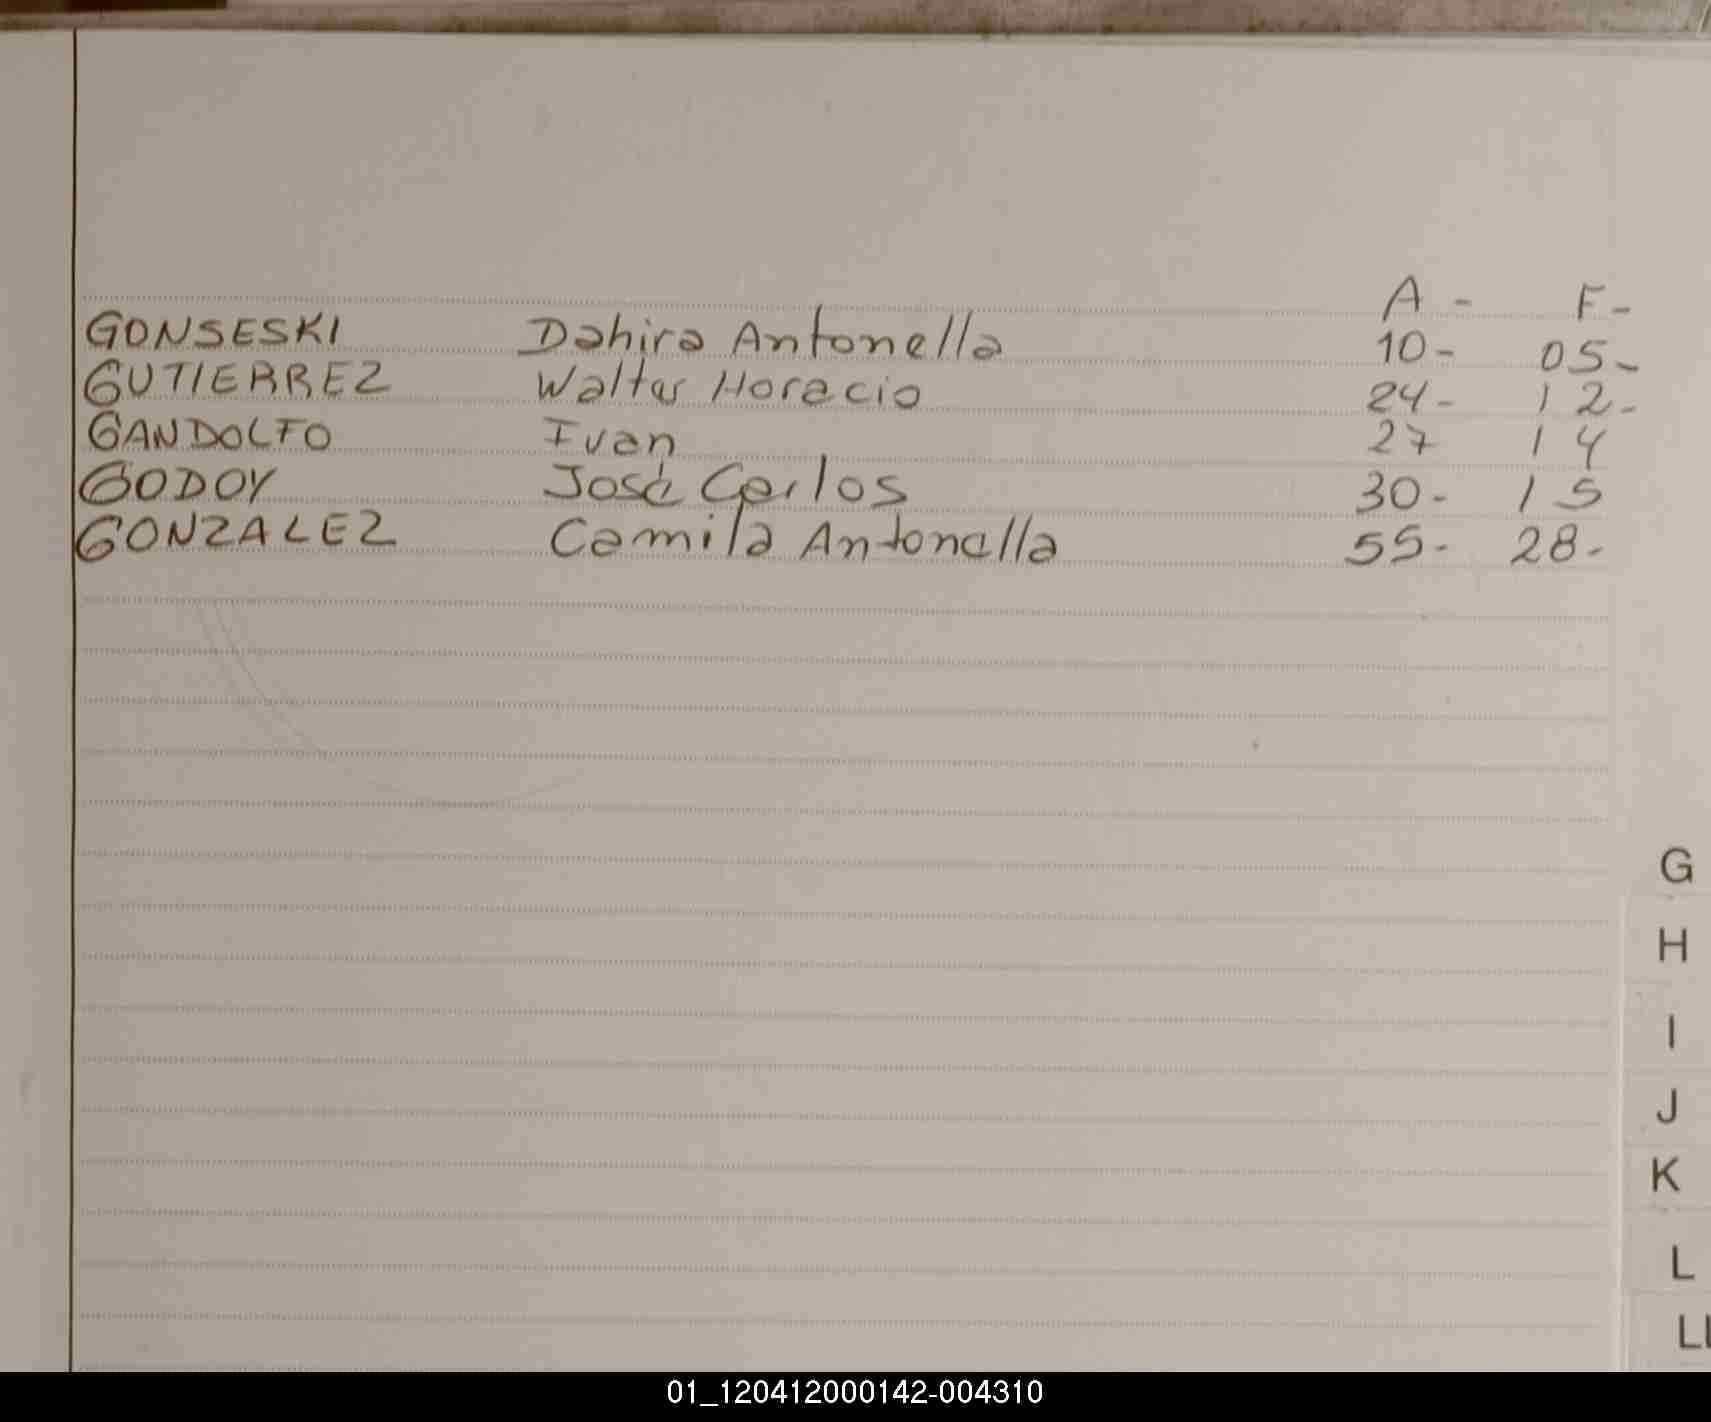 A - F -
GONSESKI Dahira Antonella 10 - 05 -
GUTIERREZ Walter Horacio 24 - 12 -
GANDOLFO Ivan 27 14
GODOY José Carlos 30 - 15
GONZALEZ Camila Antonella 55 - 28 -
G
H
I
J
K
L
LL
01_120412000142-004310